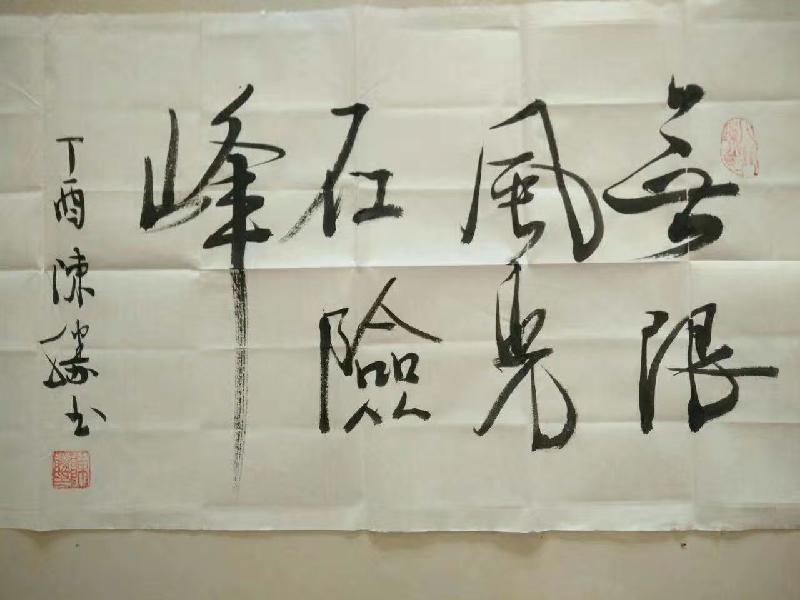 無限
風光
在險
峰
丁酉陳书